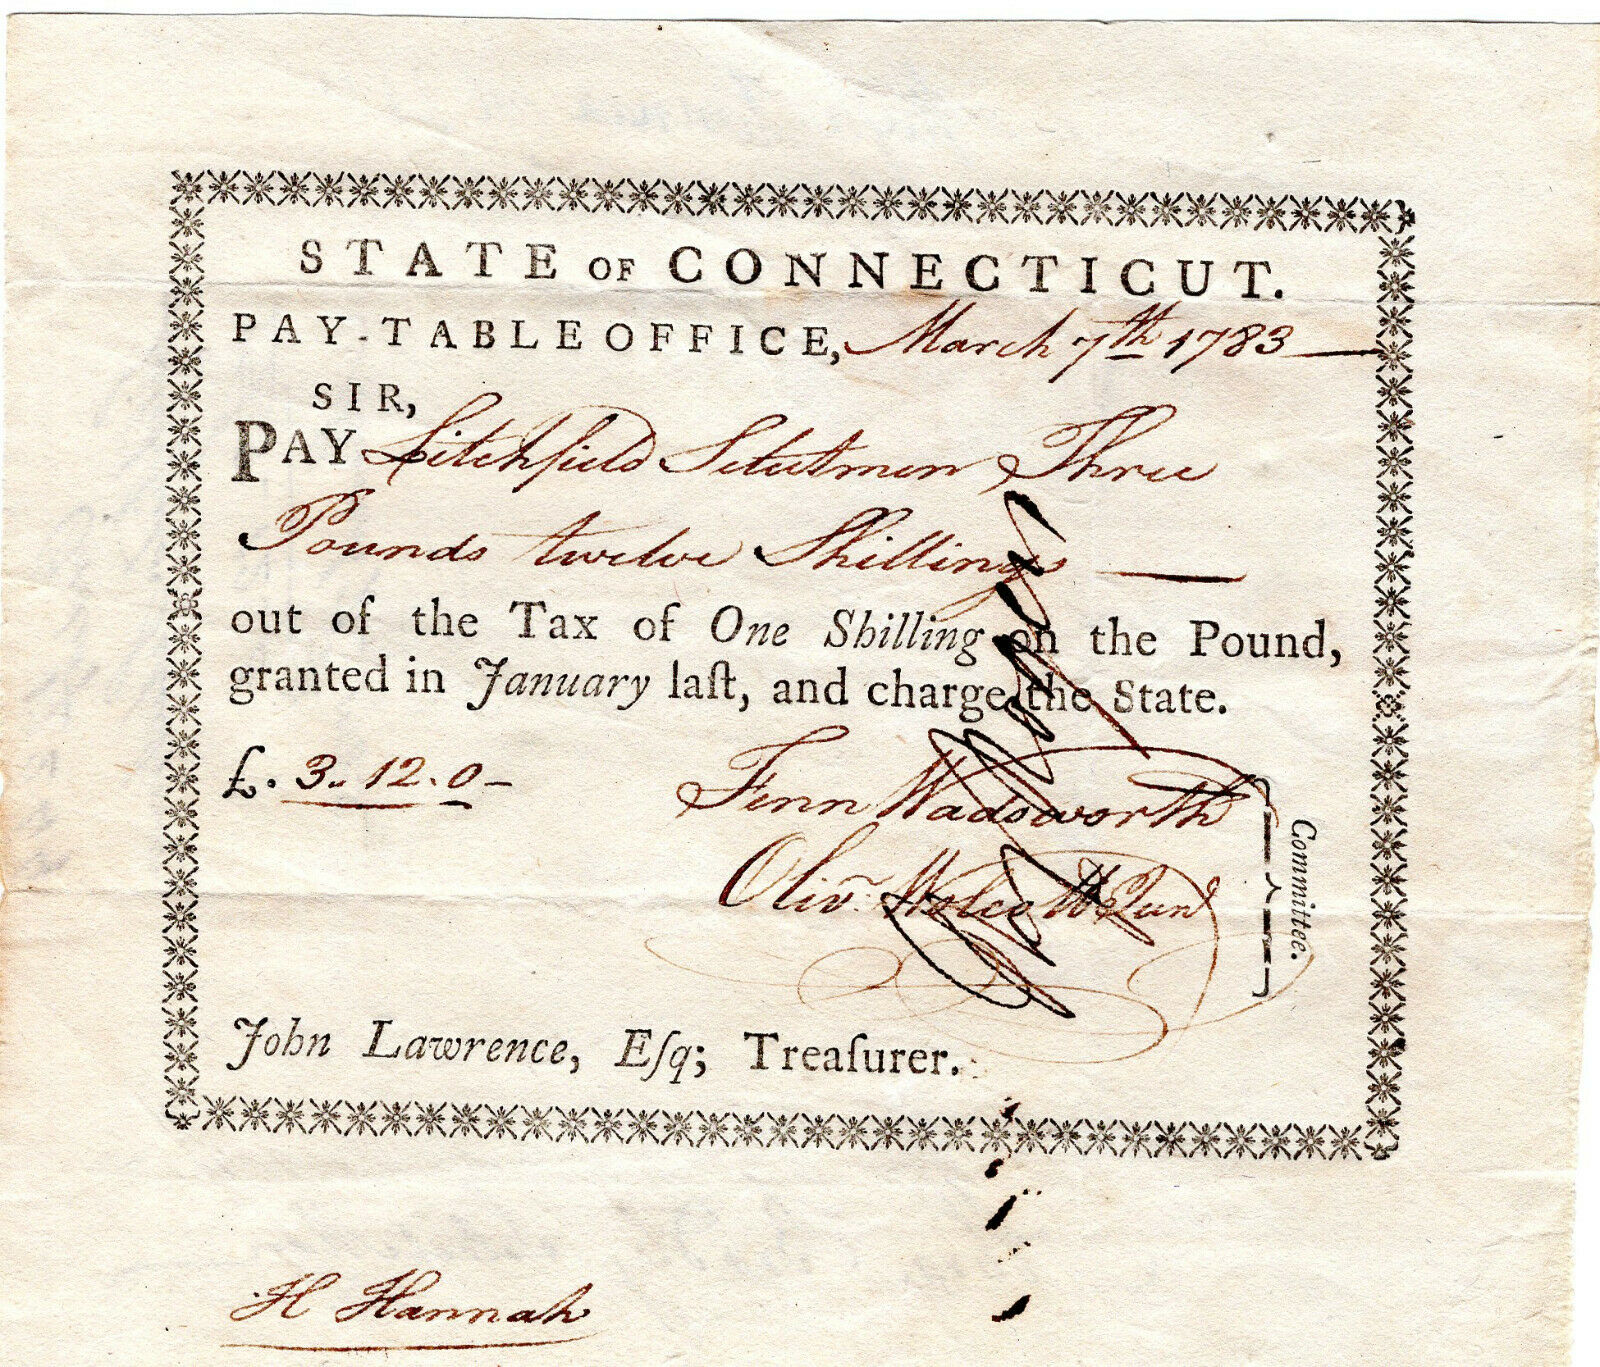 STATE OF CONNECTICUT.
PAY-TABLE OFFICE, March 7th 1783
SIR,
PAY Litchfield Selectmen Three
Pounds twelve Shillings
out of the Tax of One Shilling on the Pound,
granted in January laſt, and charge the State.
£. 3. 12. 0
Fenn Wadsworth
Olivr. Wolcott Junr
Committee.
John Lawrence, Eſq; Treaſurer.
H Hannah